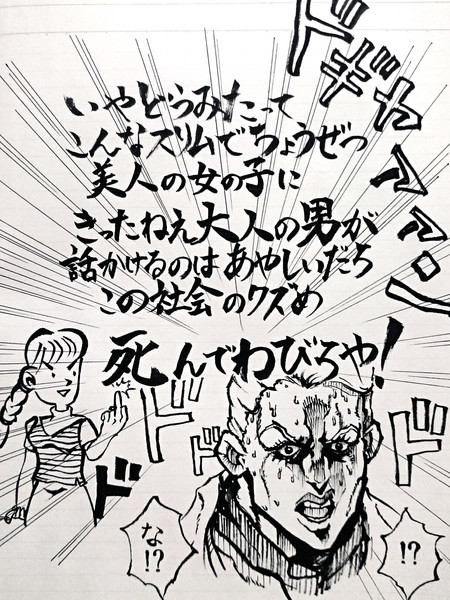 ドギャアアン
いやどうみたって
こんなスリムでちょうぜつ
美人の女の子に
きったねえ大人の男が
話かけるのはあやしいだろ
この社会のクズめ
死んでわびろや!
ド
ド
ド
ド
な!?
!?